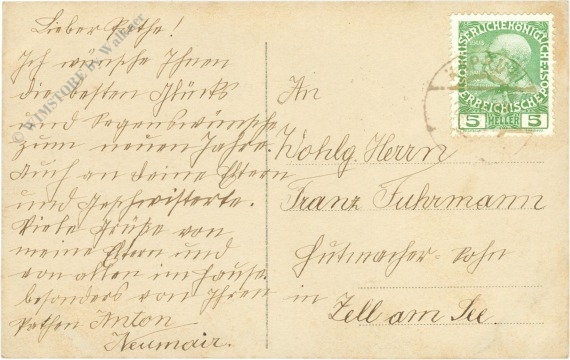 Lieber Pathe!
Ich wünsche Ihnen
die besten Glücks
und Segenswünsche
zum neuen Jahre.
Auch an deine Eltern
und Geschwisterte.
Viele Grüße von
meine Eltern und
von allen im Hause.
besonders von Ihren
Pathen Anton
Neumair.
An
Wohlg. Herrn
Franz Fuhrmann
Hutmacher-Sohn
in
Zell am See.
KAISERLICHE KÖNIGLICHE
ÖSTERREICHISCHE
5 HELLER 5
KAPRUN
© WIMSTORE by Walkner